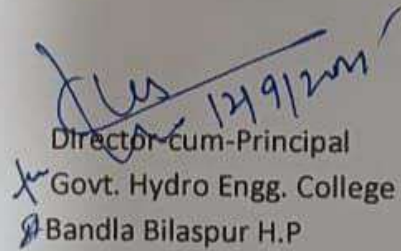 12/9/2021
Director-cum-Principal
Govt. Hydro Engg. College
Bandla Bilaspur H.P